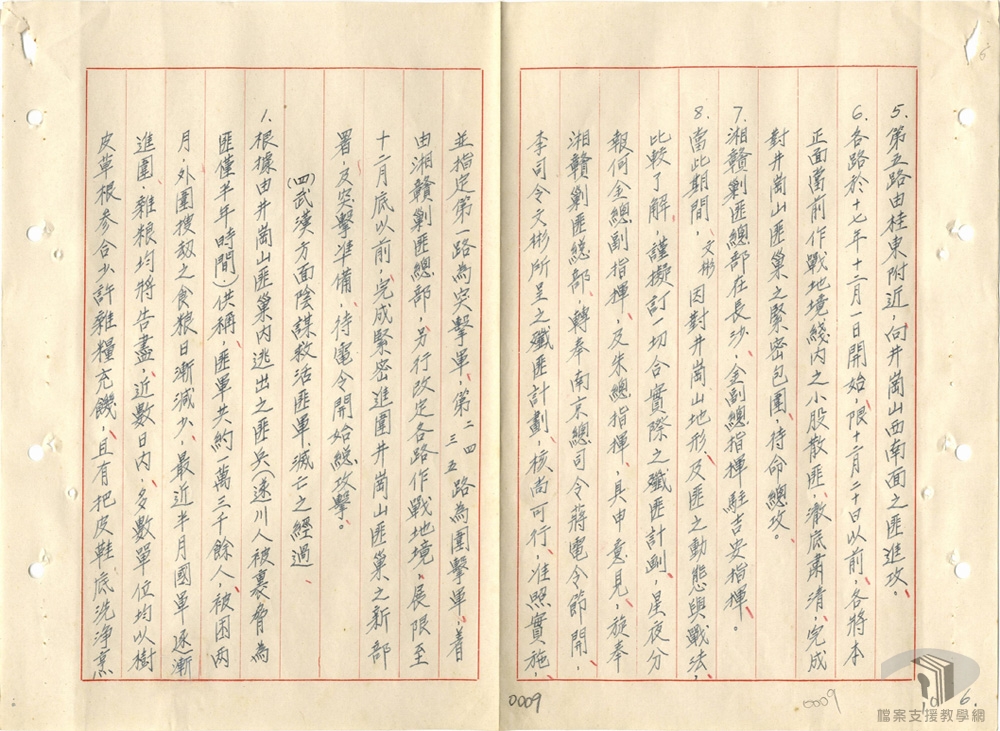 5.第五路由桂東附近，向井崗山西南面之匪進攻。
6.各路於十七年十二月一日開始，限十二月二十日以前，各將本
正面當前作戰地境綫內之小股散匪，澈底肅清，完成
對井崗山匪巢之緊密包圍，待命總攻。
7.湘贛剿匪總部在長沙，金副總指揮駐吉安指揮。
8.當此期間，文彬因對井崗山地形，及匪之動態與戰法，
比較了解，謹擬訂一切合實際之殲匪計劃，星夜分
報何金總副指揮，及朱總指揮，具申意見，旋奉
湘贛剿匪總部，轉奉南京總司令蔣電令節開，
李司令文彬所呈之殲匪計劃，核尚可行，准照實施，
並指定第一路為突擊軍，第二三四五路為圍擊軍，着
由湘贛剿匪總部，另行改定各路作戰地境，展限至
十二月底以前，完成緊密進圍井崗山匪巢之新部
署，及突擊準備，待電令開始總攻擊。
(四)武漢方面陰謀救活匪軍，滅亡之經過
1.根據由井崗山匪巢內逃出之匪兵(遂川人被裏脅為
匪僅半年時間)供稱，匪軍共約一萬三千餘人，被困兩
月，外圍搜劫之食粮日漸減少，最近半月國軍逐漸
進圍，雜粮均將告盡，近數日內，多數單位均以樹
皮草根參合少許雜糧充饑，且有把皮鞋底洗淨烹
0009
0009
6.
檔案支援教學網